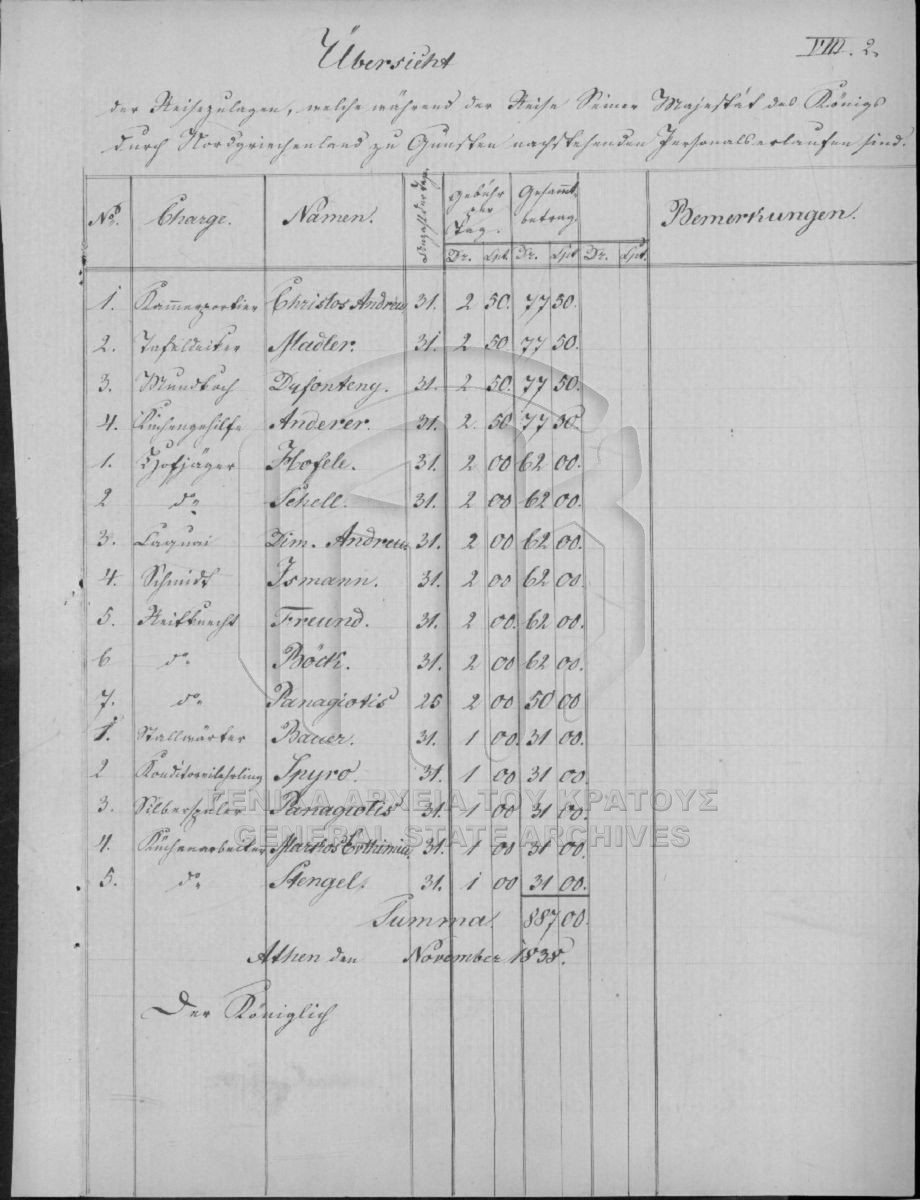 Übersicht
VIII. 2.
der Reisezulagen, welche während der Reise Seiner Majestät des Königs
durch Nordgriechenland zu Gunsten nachstehenden Personals erlaufen sind.
No. Charge. Namen. Anzahl der Tage. Gebühr per Tag. Gesammt betrag. Bemerkungen.
Dr. Lpt. Dr. Lpt Dr. Lpt.
1. Kammerportier Christos Andreu 31. 2 50. 77 50.
2. Tafeldecker Madler. 31. 2 50 77 50.
3. Mundkoch Dufonteny. 31. 2 50. 77 50.
4. Küchengehilfe Anderer. 31. 2. 50 77 50.
1. Hofjäger Hofele. 31. 2 00 62 00.
2 do Schell. 31. 2 00 62 00.
3. Laquai Dim. Andreu 31. 2 00 62 00.
4. Schmidt Ismann. 31. 2 00 62 00
5. Reitknecht Freund. 31. 2 00. 62 00.
6 do Böck. 31. 2 00 62 00.
7. do Panagiotis 25 2 00 50 00
1. Stallwärter Bauer. 31. 1 00. 31 00.
2 Konditoreilehrling Spyro. 31. 1 00 31 00.
3. Silberspüler Panagiotis 31. 1 00 31 00.
4. Küchenarbeiter Markos Evthimiu 31. 1 00 31 00.
5. do Stengel. 31. 1 00 31 00.
Summa. 887 00.
Athen den November 1838.
Der Königlich
ΓΕΝΙΚΑ ΑΡΧΕΙΑ ΤΟΥ ΚΡΑΤΟΥΣ
GENERAL STATE ARCHIVES